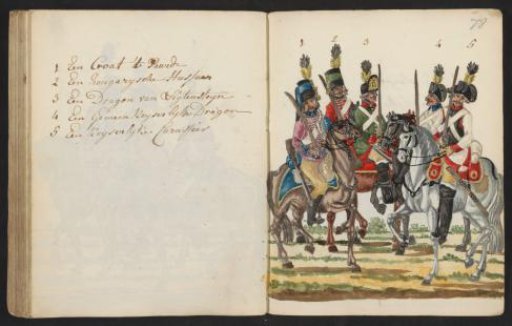 1 Een Croat te Paerde
2 Een Hongarysche Hussaer
3 Een Dragon van
4 Een Gemeen Keyserlyke Dragon
5 Een Keyserlyke Curassier
78
1 2 3 4 5